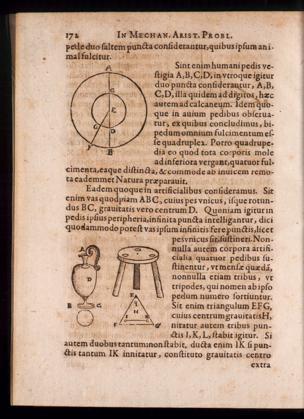 172 IN MECHAN. ARIST. PROBL.
pede duo saltem puncta considerantur, quibus ipsum ani-
mal fulcitur.
Sint enim humani pedis ve-
stigia A, B, C, D, in vtroque igitur
duo puncta considerantur, A, B,
C, D, illa quidem ad digitos, hæc
autem ad calcaneum. Idem quo-
que in auium pedibus obserua-
tur, ex quibus concludimus, bi-
pedum omnium fulcimentum es-
se quadruplex. Porro quadrupe-
dia eo quod tota corporis mole
ad inferiora vergant, quatuor ful-
cimenta, eaque distincta, & commode ab inuicem remo-
ta eademmet Natura præparauit.
Eadem quoque in artificialibus consideramus. Sit
enim vas quodpiam ABC, cuius pes vnicus, isque rotun-
dus BC, grauitatis vero centrum D. Quoniam igitur in
pedis ipsius peripheria, infinita puncta intelliguntur, dici
quodammodo potest vas ipsum infinitis fere punctis, licet
pes vnicus sit, sustineri. Non-
nulla autem corpora artifi-
cialia quatuor pedibus su-
stinentur, vt mensæ quædā,
nonnulla etiam tribus, vt
tripodes, qui nomen ab ipso
pedum numero sortiuntur.
Sit enim triangulum EFG,
cuius centrum grauitatis H,
nitatur autem tribus pun-
ctis I, K, L, stabit igitur. Si
autem duobus tantum, non stabit, ducta enim IK si pun-
ctis tantum IK innitatur, constituto grauitatis centro
extra
A
E
C
D
B
A
D
B
C
E
H
F
G